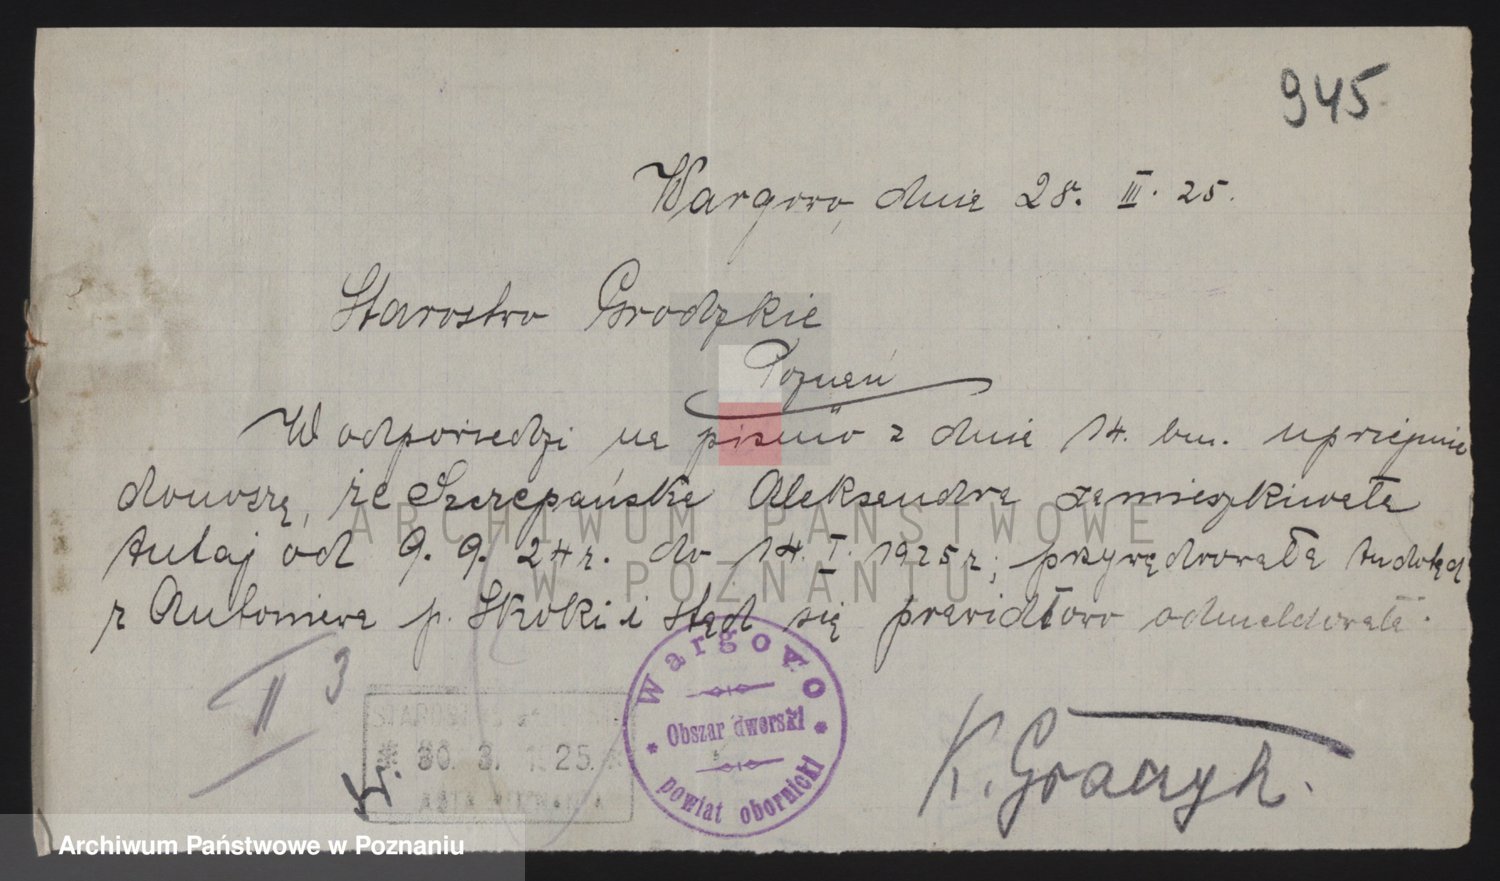 945
Wargowo, dnia 28. III. 25.
Starostwo Grodzkie
Poznań
W odpowiedzi na pismo z dnia 14. bm. uprzejmie
donoszę, że Szczepańska Aleksandra zamieszkiwała
tutaj od 9. 9. 24 r. do 14. I. 1925 r.; przywędrowała tudotąd
z Antoniewa p. Skoki i stąd się prawidłowo odmeldowała.
II 3
STAROSTWO
30. 3. 1925.
Wargowo
Obszar dworski
powiat obornicki
K. Graczyk.
ARCHIWUM PAŃSTWOWE
W POZNANIU
Archiwum Państwowe w Poznaniu